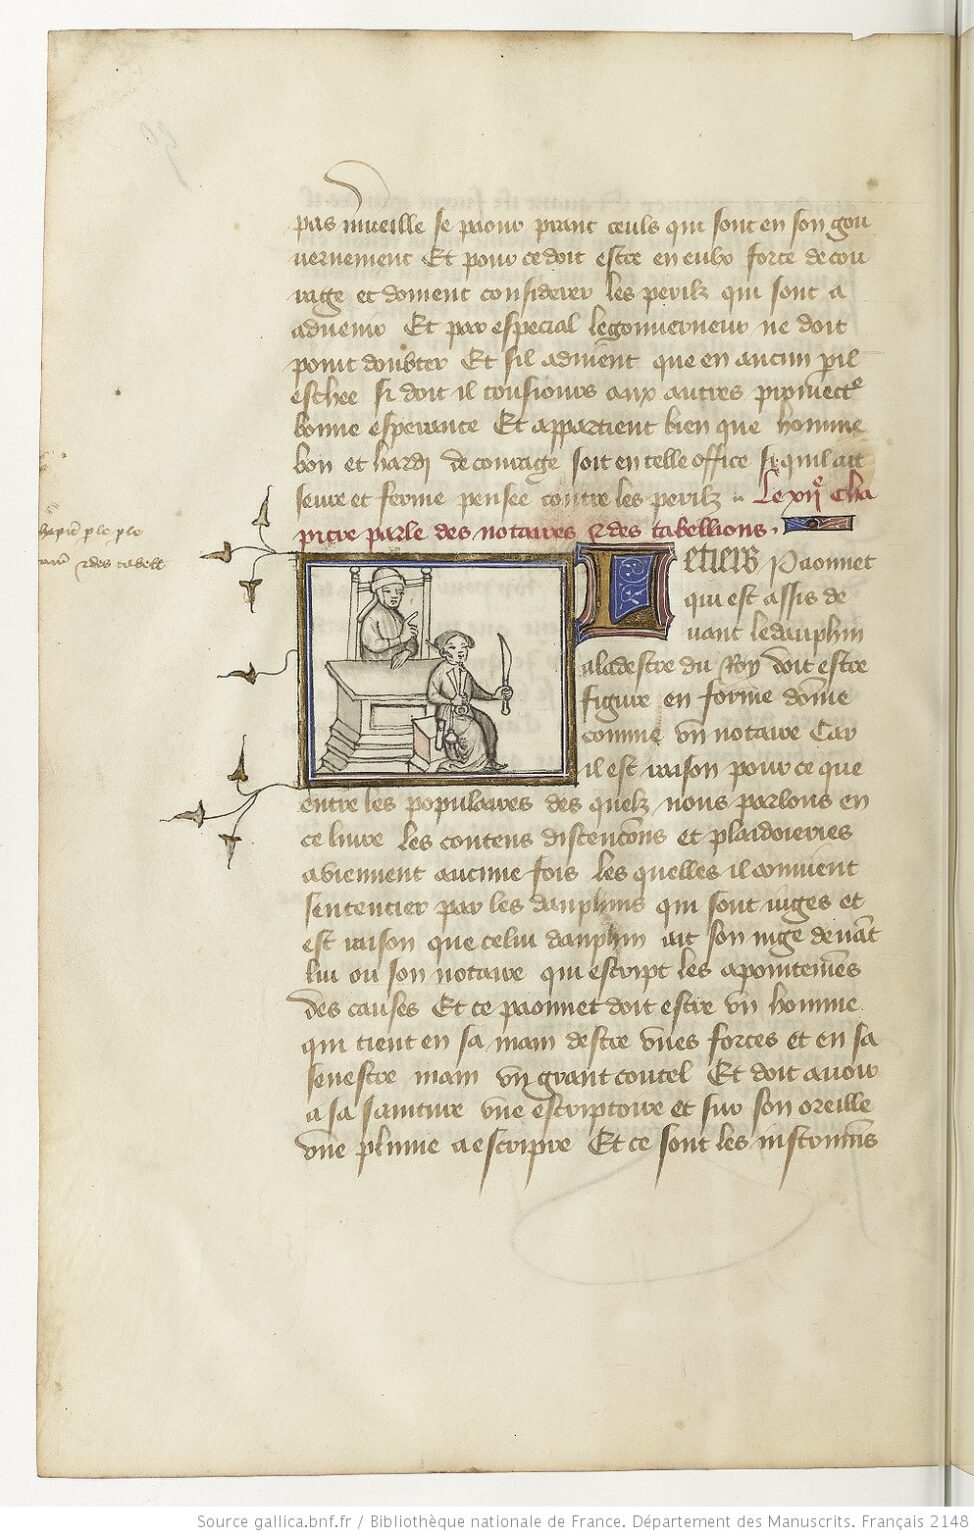 pas mueille se paour prant ceuls qui sont en son gou
uernement Et pour ce doit estre en eulx force de cou
rage et doiuent considerer les perilz qui sont a
aduenir Et par especial le gouuerneur ne doit
point doubter Et sil aduient que en aucun pil
eschee si doit il tousiours aux autres
bonne esperance Et appartient bien que homme
bon et hardi de courage soit en telle office si quil ait
seure et ferme pensee contre les perilz Le xije cha
pitre parle des notaires & des tabellions.
& des tabell
Le tiers Paonnet
qui est assis de
uant le dauphin
a la destre du Roy doit estre
figure en forme dome
comme vn notaire Car
il est raison pour ce que
entre les populaires des quelz nous parlons en
ce liure les contens discencons et plaidoieries
abiennent aucune fois les quelles il conuient
sentencier par les dauphins qui sont iuges et
est raison que celui dauphin ait son iuge deuat
lui ou son notaire qui escript les apointemes
des causes Et ce paonnet doit estre vn homme
qui tient en sa main destre vnes forces et en sa
senestre main vn grant coutel Et doit auoir
a sa sainture vne escriptoire et sur son oreille
vne plume a escripre Et ce sont les instrumes
Source gallica.bnf.fr / Bibliothèque nationale de France. Département des Manuscrits. Français 2148